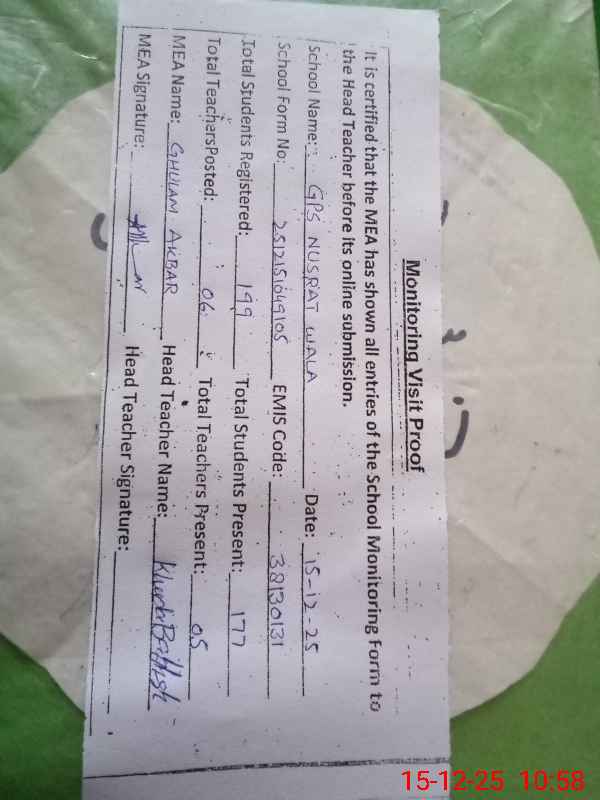 Monitoring Visit Proof
It is certified that the MEA has shown all entries of the School Monitoring Form to
the Head Teacher before its online submission.
School Name: GPS NUSRAT WALA Date: 15-12-25
School Form No: 2512151049105 EMIS Code: 38130131
Total Students Registered: 199 Total Students Present: 177
Total Teachers Posted: 06 Total Teachers Present: 05
MEA Name: GHULAM AKBAR Head Teacher Name: Khuda Bakhsh
MEA Signature: Head Teacher Signature:
15-12-25 10:58